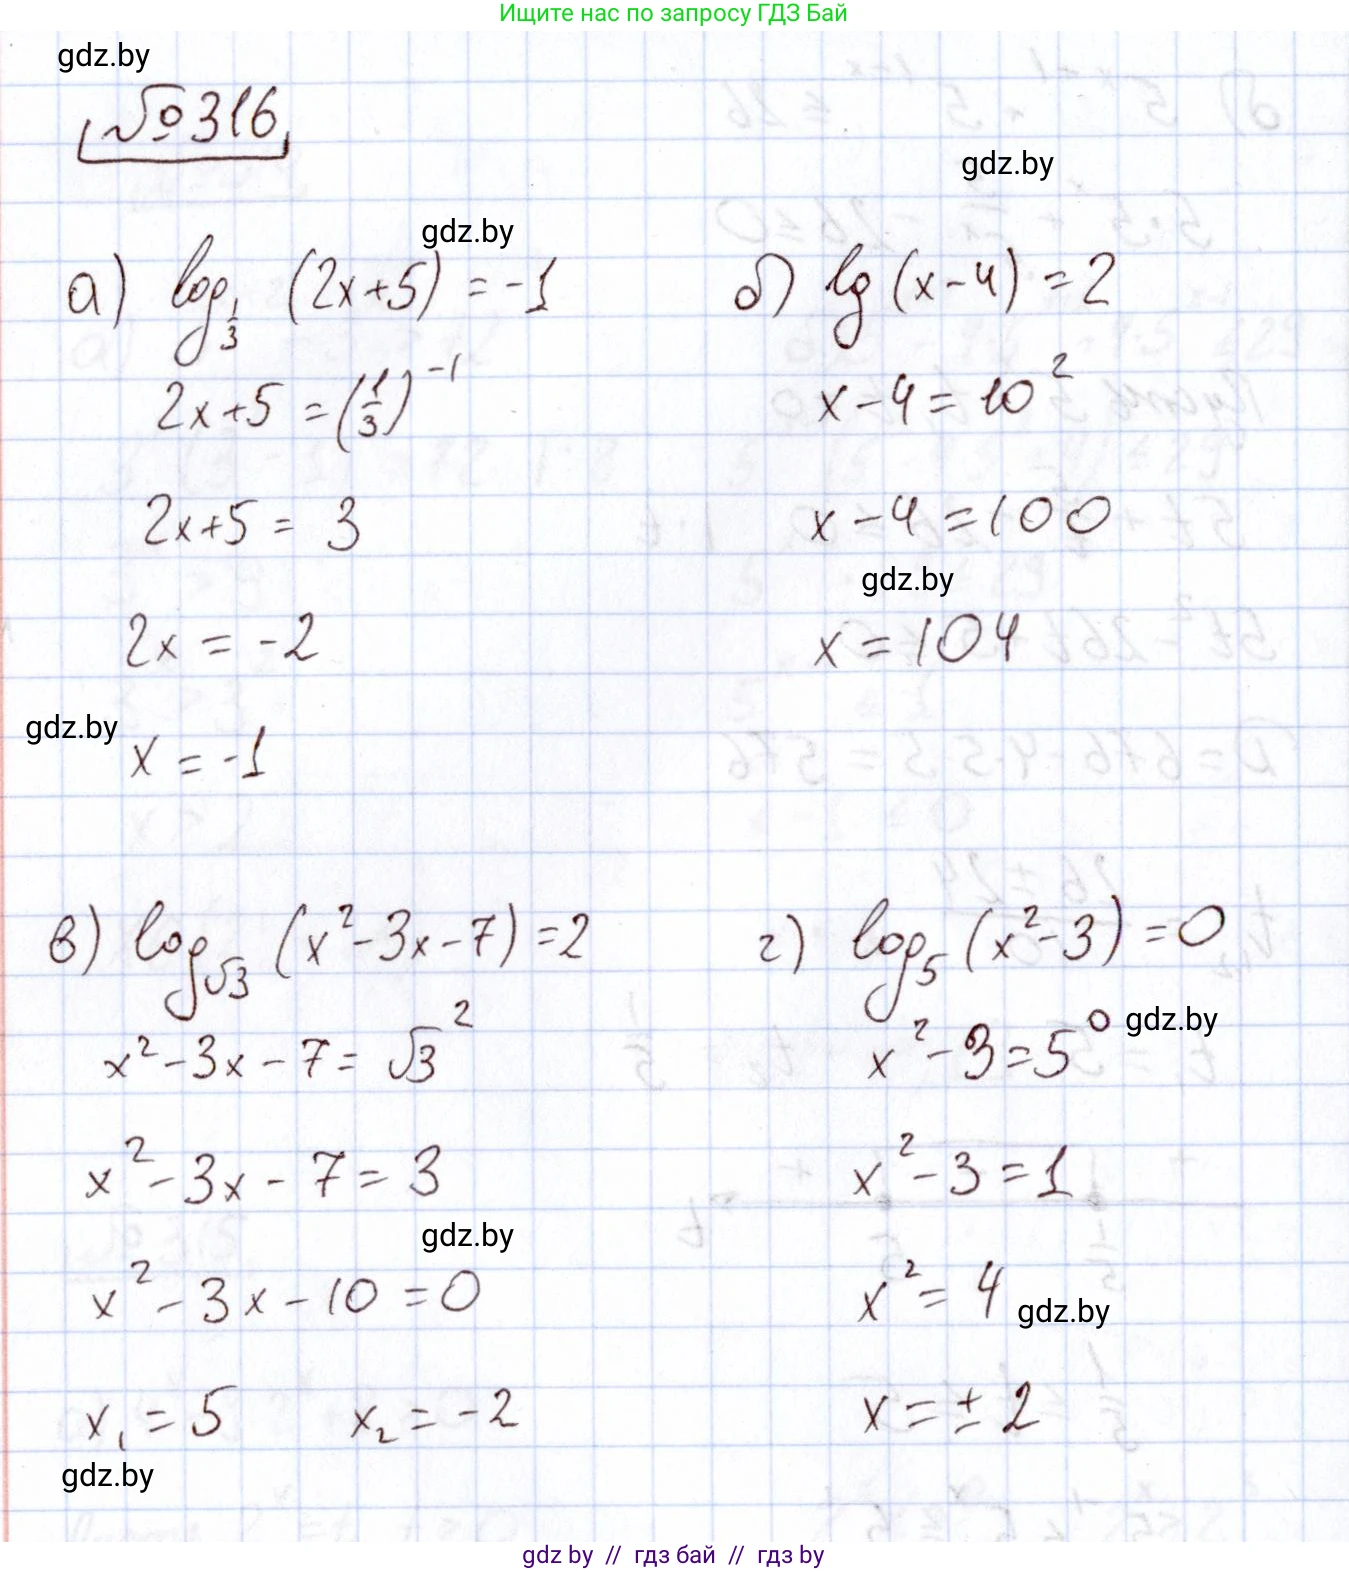 Ищите нас по запросу ГДЗ Бай
gdz.by
№316
gdz.by
gdz.by
а) log_{1/3} (2x+5) = -1
2x+5 = (1/3)^{-1}
2x+5 = 3
2x = -2
gdz.by
x = -1
б) lg (x-4) = 2
x-4 = 10²
x-4 = 100
gdz.by
x = 104
в) log_{√3} (x²-3x-7) = 2
x²-3x-7 = √3²
x²-3x-7 = 3
gdz.by
x²-3x-10 = 0
x₁ = 5 x₂ = -2
gdz.by
г) log₅ (x²-3) = 0
x²-3 = 5⁰ gdz.by
x²-3 = 1
x² = 4
gdz.by
x = ±2
gdz by // гдз бай // гдз by